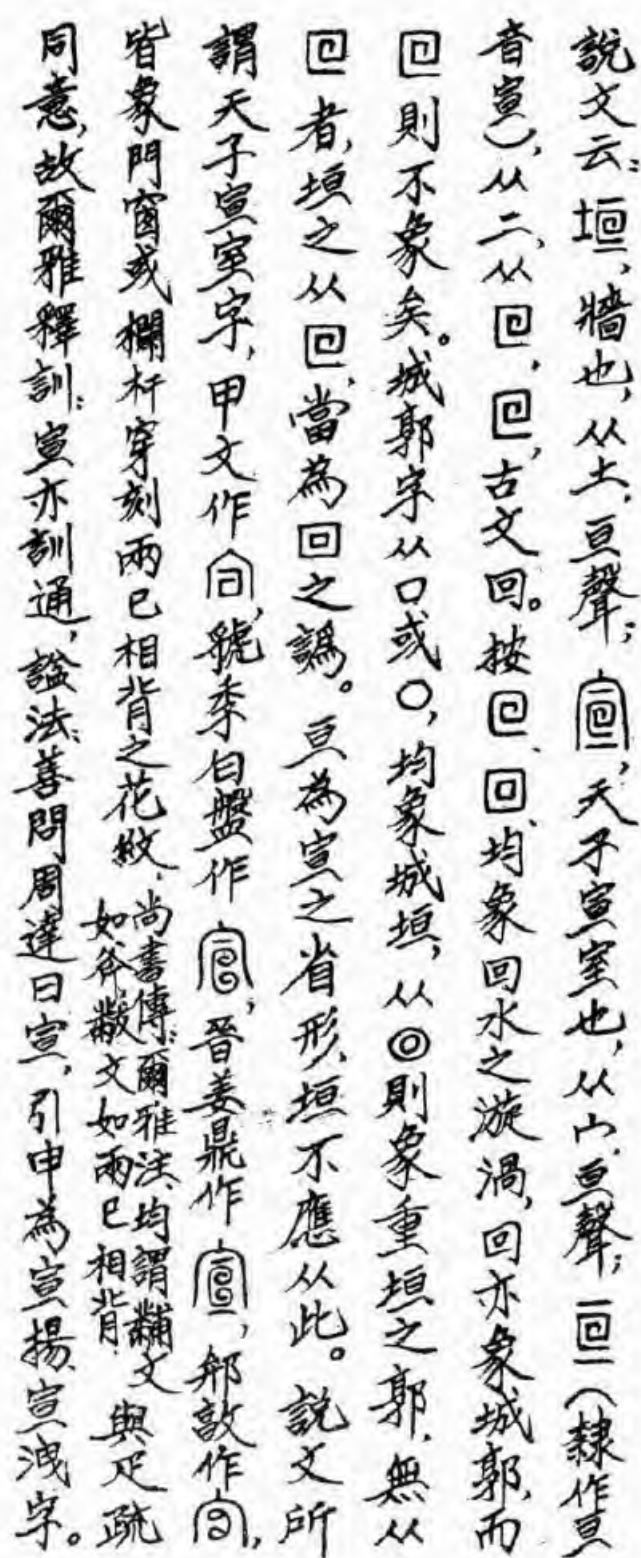 說文云：垣，牆也，从土，亘聲；宣，天子宣室也，从宀亘聲；亘（隸作亘
音宣），从二，从回，回，古文回。按回、回、均象回水之漩渦，回亦象城郭，而
回則不象矣。城郭字从口或〇，均象城垣，从◎則象重垣之郭，無从
回者，垣之从回，當為回之譌。亘為宣之省形，垣不應从此。說文所
謂天子宣室字，甲文作，虢季白盤作，晉姜鼎作，敦作，
皆象門窗或欄杆穿刻兩已相背之花紋，尚書傳、爾雅注、均謂黼文如斧黻文如兩已相背，與疋疏
同意，故爾雅釋訓：宣亦訓通，謚法：善問周達曰宣，引申為宣揚、宣洩字。